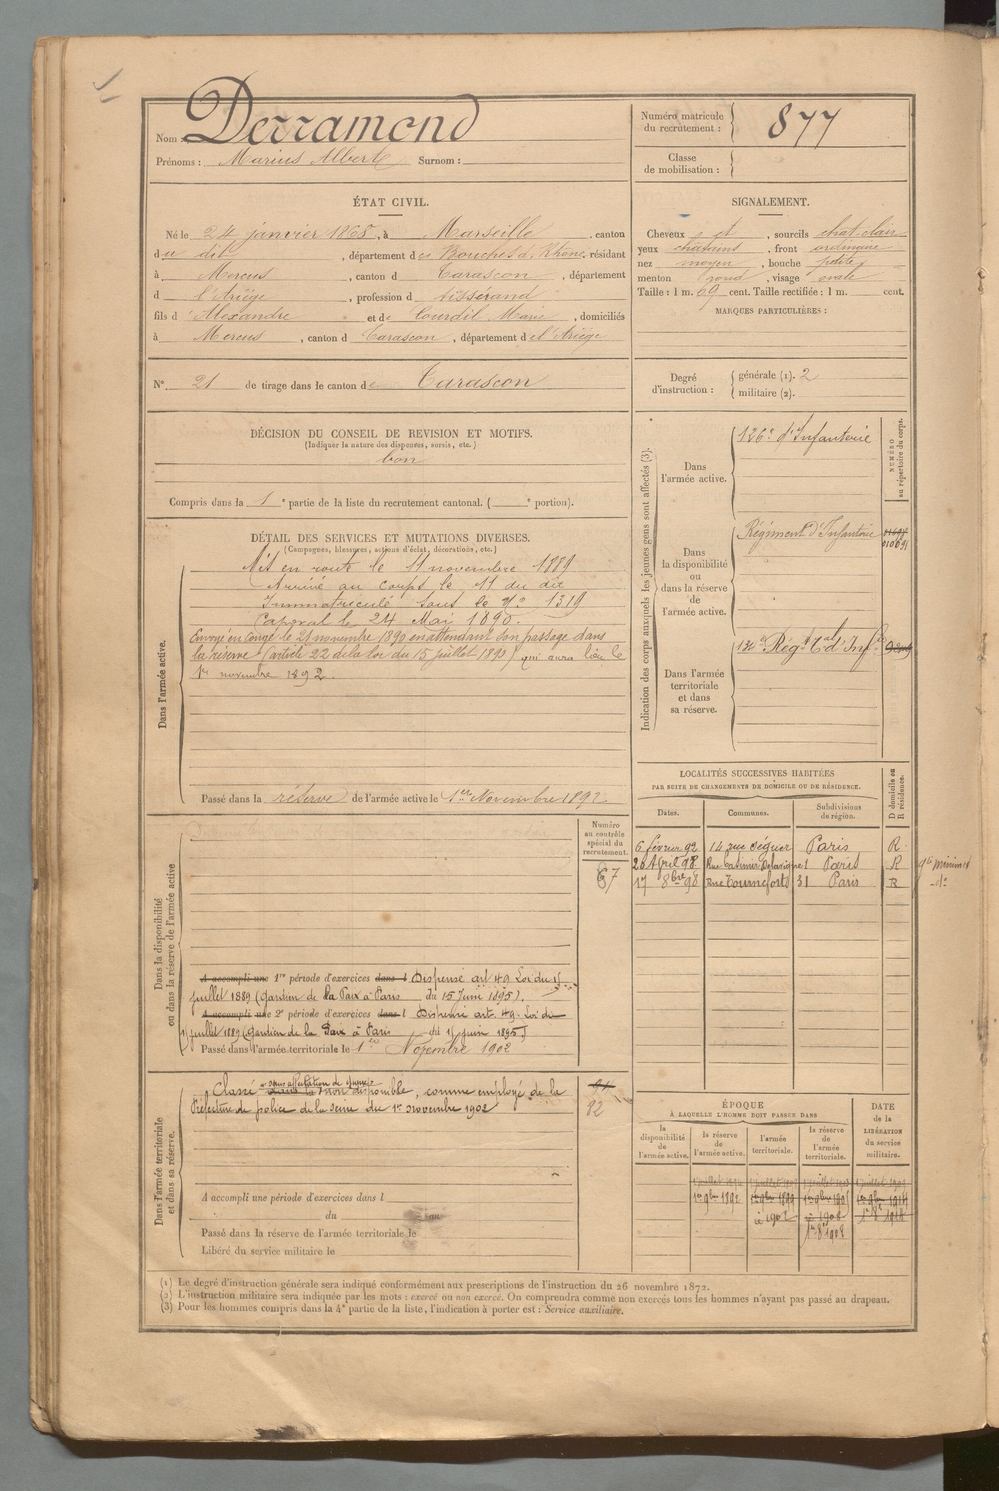 Nom : Derramond
Prénoms : Marius Albert Surnom :
Numéro matricule
du recrutement : 877
Classe
de mobilisation :
ÉTAT CIVIL.
Né le 24 janvier 1865, à Marseille, canton
du dit, département des Bouches d. Rhône, résidant
à Mercus, canton d Tarascon, département
d l'Ariège, profession d tisserand
fils d'Alexandre et de Courdil Marie, domiciliés
à Mercus, canton d Tarascon, département de l'Ariège
N° 21 de tirage dans le canton de Tarascon
SIGNALEMENT.
Cheveux et, sourcils chat. clair
yeux chatains, front ordinaire
nez moyen, bouche petite
menton rond, visage ovale
Taille : 1 m. 69 cent. Taille rectifiée : 1 m. cent.
MARQUES PARTICULIÈRES :
Degré
d'instruction :
générale (1). 2
militaire (2).
DÉCISION DU CONSEIL DE REVISION ET MOTIFS.
(Indiquer la nature des dispenses, sursis, etc.)
bon
Compris dans la 1e partie de la liste du recrutement cantonal. ( e portion).
DÉTAIL DES SERVICES ET MUTATIONS DIVERSES.
(Campagnes, blessures, actions d'éclat, décorations, etc.)
Dans l'armée active.
Mis en route le 11 novembre 1889
Arrivé au corps le 11 du dit
Immatriculé sous le N° 1319
Caporal le 24 Mai 1890.
Envoyé en congé le 21 novembre 1890 en attendant son passage dans
la réserve (article 22 de la loi du 15 juillet 1890) qui aura lieu le
1er novembre 1892.
Passé dans la réserve de l'armée active le 1er Novembre 1892
Indication des corps auxquels les jeunes gens sont affectés (3).
NUMÉRO
au répertoire du corps.
Dans
l'armée active.
126e d'Infanterie
Dans
la disponibilité
ou
dans la réserve
de
l'armée active.
Régiment d'Infanterie
Dans l'armée
territoriale
et dans
sa réserve.
134e Régt tal d'Infie
LOCALITÉS SUCCESSIVES HABITÉES
PAR SUITE DE CHANGEMENTS DE DOMICILE OU DE RÉSIDENCE.
D domicile ou
R résidence.
Dates. Communes. Subdivisions
de région.
6 février 92 14 rue Séguier Paris R.
26 April 98 Rue Casimir Delavigne 1 Paris R
17 8bre 98 Rue Tournefort 31 Paris R
do
Dans la disponibilité
ou dans la réserve de l'armée active
Numéro
au contrôle
spécial du
recrutement.
67
A accompli une 1re période d'exercices dans l Dispensé art 49 Loi du 15
juillet 1889 (Gardien de la Paix à Paris du 15 Juin 1895).
A accompli une 2e période d'exercices dans l Dispensé art. 49. Loi du
15 juillet 1889 (Gardien de la Paix à Paris du 15 juin 1895)
Passé dans l'armée territoriale le 1er Novembre 1902
Dans l'armée territoriale
et dans sa réserve.
sans affectation de
Classé dans la non disponible, comme employé de la
Préfecture de police de la Seine du 1er novembre 1902
A accompli une période d'exercices dans l
du
Passé dans la réserve de l'armée territoriale le
Libéré du service militaire le
ÉPOQUE
À LAQUELLE L'HOMME DOIT PASSER DANS
DATE
de la
LIBÉRATION
du service
militaire.
la
disponibilité
de
l'armée active.
la réserve
de
l'armée active.
l'armée
territoriale.
la réserve
de
l'armée
territoriale.
1er 9bre 1892
(1) Le degré d'instruction générale sera indiqué conformément aux prescriptions de l'instruction du 26 novembre 1872.
(2) L'instruction militaire sera indiquée par les mots : exercé ou non exercé. On comprendra comme non exercés tous les hommes n'ayant pas passé au drapeau.
(3) Pour les hommes compris dans la 4e partie de la liste, l'indication à porter est : Service auxiliaire.